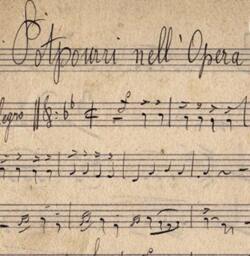 Potpourri nell' Opera
legro